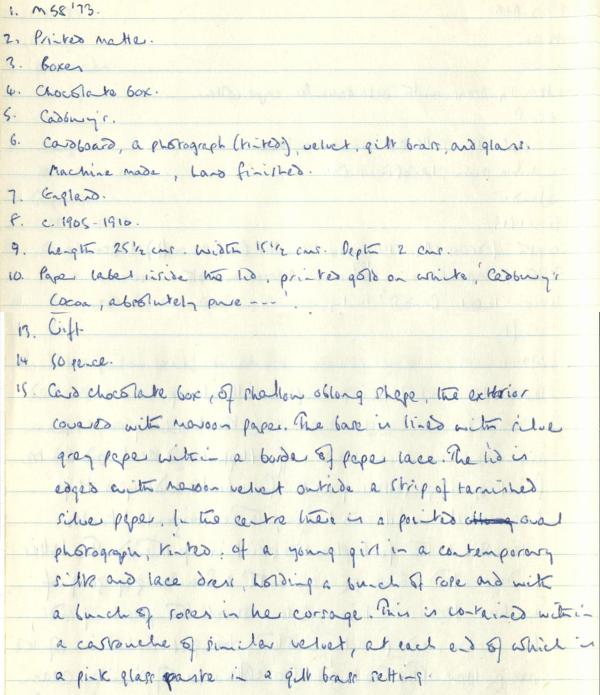 1. M58'73.
2. Printed matter.
3. Boxes
4. Chocolate box.
5. Cadbury's.
6. Cardboard, a photograph (tinted), velvet, gilt brass, and glass.
Machine made, hand finished.
7. England.
8. c. 1905-1910.
9. Length 25½ cms. Width 15½ cms. Depth 2 cms.
10. Paper label inside the lid, printed gold on white, 'Cadbury's
Cocoa, absolutely pure ---'.
13. Gift
14 50 pence.
15 Card chocolate box, of shallow oblong shape, the exterior
covered with maroon paper. The base is lined with silver
grey paper within a border of paper lace. The lid is
edged with maroon velvet outside a strip of tarnished
silver paper. In the centre there is a pointed oval
photograph, tinted, of a young girl in a contemporary
silk and lace dress, holding a bunch of rose and with
a bunch of roses in her corsage. This is contained within
a cartouche of similar velvet, at each end of which is
a pink glass paste in a gilt brass setting.